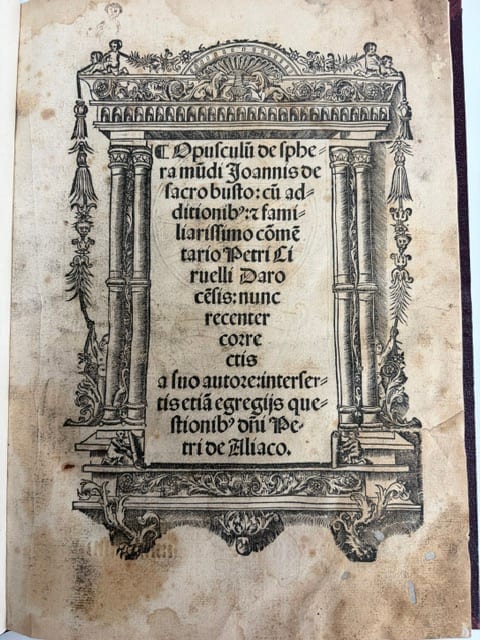 ❡ Opusculū de sphe-
ra mūdi Joannis de
sacro busto: cū ad-
ditionibꝰ: ⁊ fami-
liarissimo cōmē
tario Petri Ci
ruelli Daro
cēsis: nunc
recenter
corre
ctis
a suo autore: interser-
tis etiā egregijs que-
stionibꝰ dn̄i Pe-
tri de Aliaco.